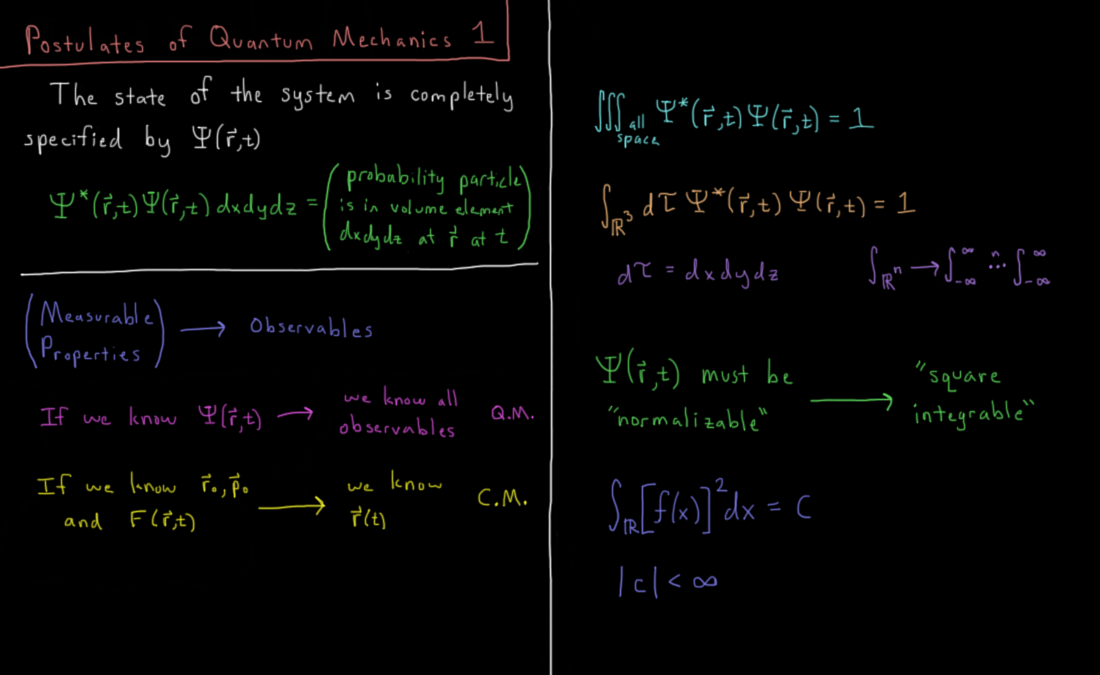 Postulates of Quantum Mechanics 1
The state of the system is completely
specified by Ψ(r⃗,t)
Ψ*(r⃗,t)Ψ(r⃗,t) dxdydz = (probability particle
is in volume element
dxdydz at r⃗ at t)
(Measurable
Properties) → Observables
If we know Ψ(r⃗,t) → we know all
observables Q.M.
If we know r⃗₀, p⃗₀
and F(r⃗,t) → we know
r⃗(t) C.M.
∭all space Ψ*(r⃗,t)Ψ(r⃗,t) = 1
∫ℝ³ dτ Ψ*(r⃗,t) Ψ(r⃗,t) = 1
dτ = dxdydz ∫ℝⁿ → ∫₋∞^∞ ⋯ⁿ ∫₋∞^∞
Ψ(r⃗,t) must be
"normalizable" → "square
integrable"
∫ℝ[f(x)]²dx = C
|c| < ∞